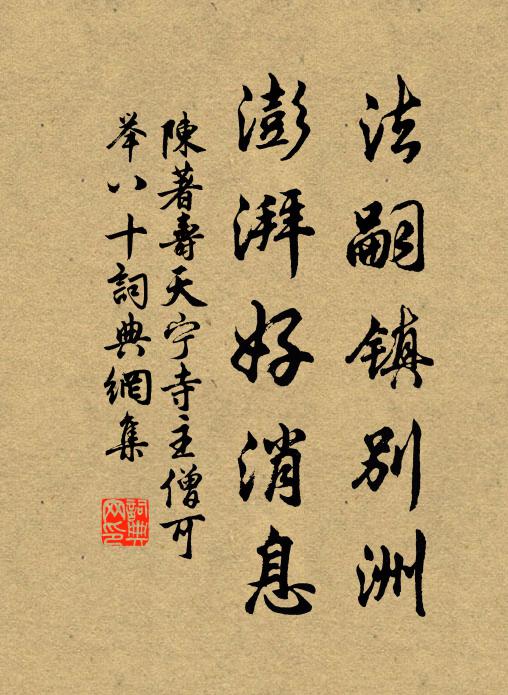 法嗣镇别洲
澎湃好消息
陳著壽天宁寺主僧可
举八十詞典網集
詞典網印